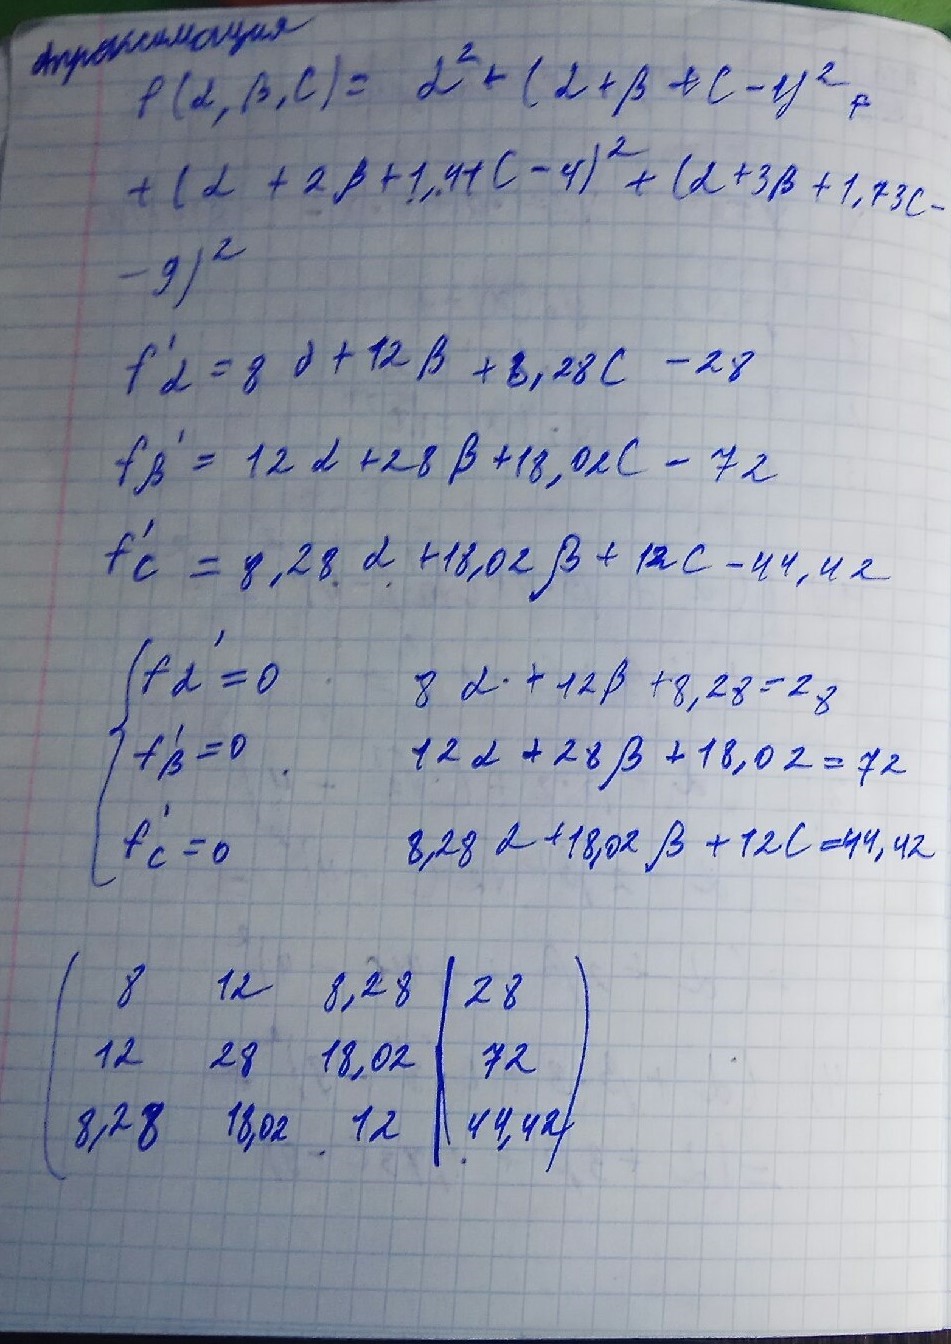 Апроксимация
f(α, β, C) = α² + (α + β + C - 1)² +
+ (α + 2β + 1,41C - 4)² + (α + 3β + 1,73C -
- 9)²
f'α = 8α + 12β + 8,28C - 28
f'β = 12α + 28β + 18,02C - 72
f'C = 8,28α + 18,02β + 12C - 44,42
f'α = 0 8α + 12β + 8,28 = 28
f'β = 0 12α + 28β + 18,02 = 72
f'C = 0 8,28α + 18,02β + 12C = 44,42
8 12 8,28 | 28
12 28 18,02 | 72
8,28 18,02 12 | 44,42